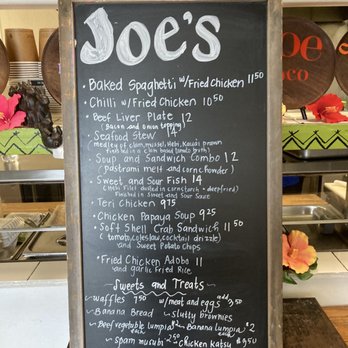 Joe's
• Baked Spaghetti w/Fried Chicken 11.50
• Chilli w/Fried Chicken 10.50
• Beef Liver Plate 12
(Bacon and onion topping)
• Seafood Stew 14
(medley of clam, mussel, Hebi, Kauai prawn
finished in a clam based tomato broth)
• Soup and Sandwich Combo 12
(Pastrami melt and corn chowder)
• Sweet and Sour Fish 14
(Hebi Filet dusted in cornstarch + deepfried)
Finished in Sweet and Sour Sauce
• Teri Chicken 9.75
• Chicken Papaya Soup 9.25
• Soft Shell Crab Sandwich 11.50
(tomato, coleslaw, cocktail drizzle)
and Sweet Potato Chips
• Fried Chicken Adobo 11
and garlic Fried Rice
Sweets and Treats
waffles 7.50 w/meat and eggs
Banana Bread Slutty Brownies
Beef vegetable lumpia Banana Lumpia $2
spam musubi 2.50 chicken katsu $9.50
oe
co